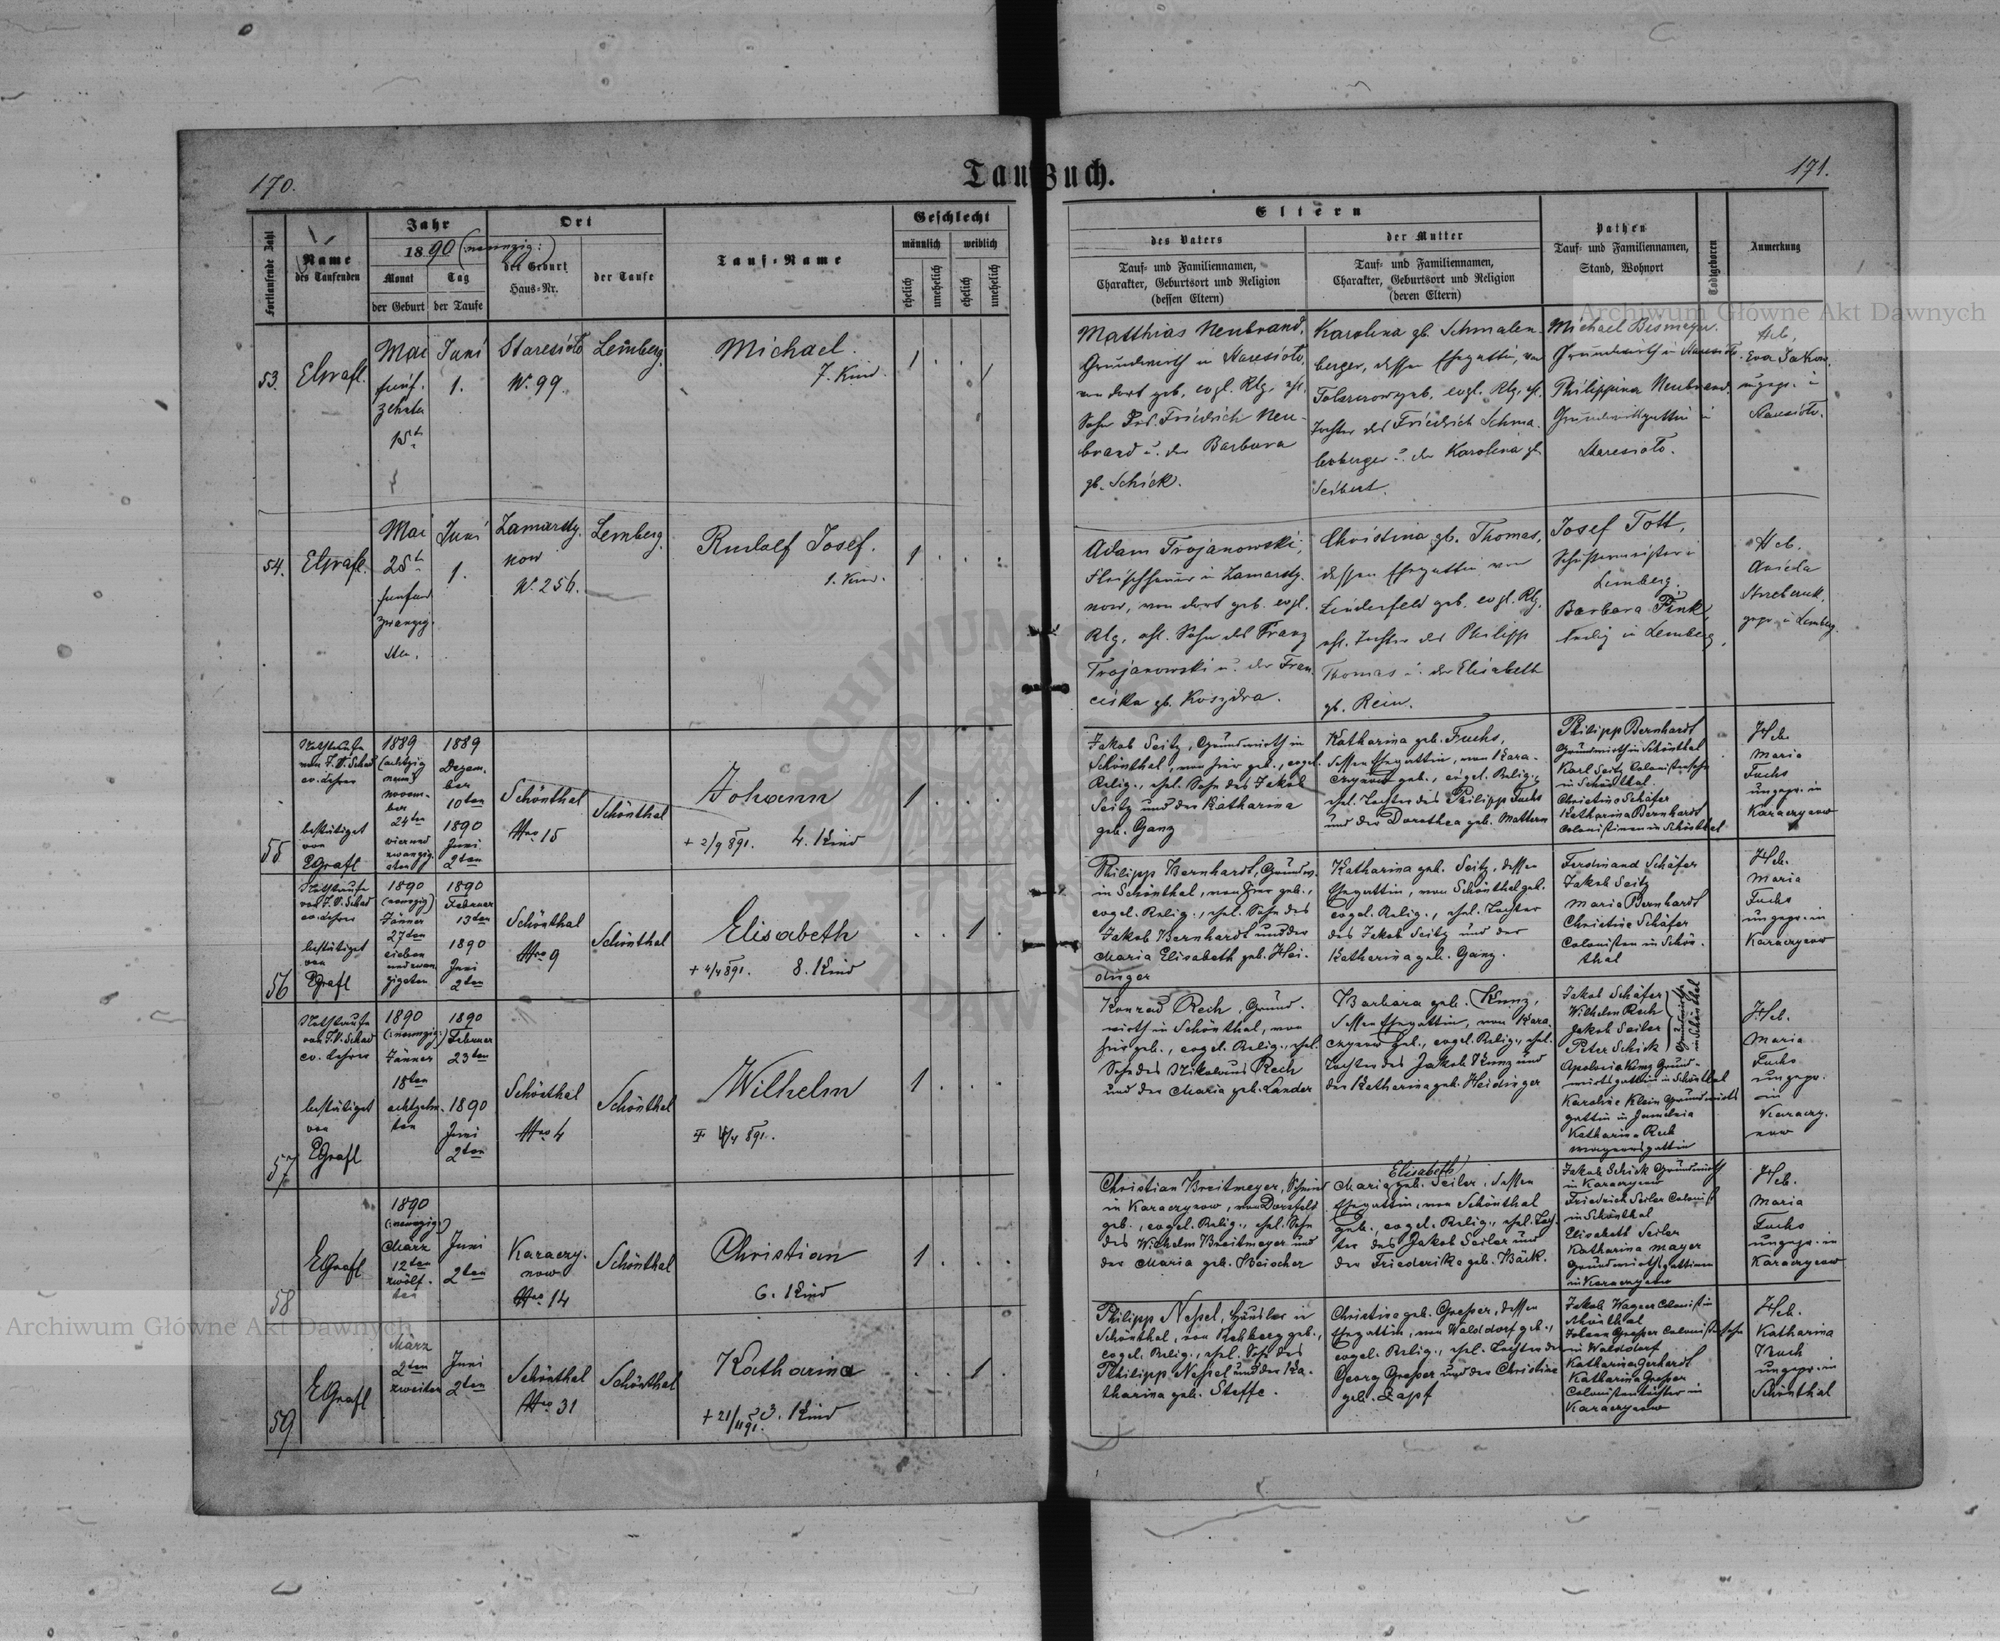 170.
TaufBuch.
171.
Fortlaufende Zahl
Name
des Taufenden
Jahr
1890 (neunzig:)
Monat
der Geburt
Tag
der Taufe
Ort
der Geburt
Haus-Nr.
der Taufe
Tauf-Name
Geschlecht
männlich
weiblich
ehelich
unehelich
ehelich
unehelich
Eltern
des Vaters
Tauf- und Familiennamen,
Charakter, Geburtsort und Religion
(dessen Eltern)
der Mutter
Tauf- und Familiennamen,
Charakter, Geburtsort und Religion
(deren Eltern)
Pathen
Tauf- und Familiennamen,
Stand, Wohnort
Todtgeboren
Anmerkung
53.
EGrafl.
Mai
fünf-
zehnten
15t
Juni
1.
Staresioło
N. 99
Lemberg.
Michael.
7. Kind.
1
Matthias Neubrand,
Grundwirth in Staresioło,
von dort geb., evgl. Rlg., ehl.
Sohn des Friedrich Neu-
brand u. der Barbara
gb. Schick.
Karolina gb. Schmalen-
berger, dessen Ehegattin, von
geb. evgl. Rlg. ehl.
Tochter des Friedrich Schma-
lenberger u. der Karolina gb.
Seibert.
Michael Bismeyer
Grundwirth in Staresioło.
Philippina Neubrand,
Grundwirthgattin in
Staresioło.
Heb.
Eva
ungepr. in
Staresioło.
54.
EGrafl.
Mai
25t
fünfund
zwanzig-
sten.
Juni
1.
Zamarsty-
now
N. 256.
Lemberg.
Rudolf Josef.
1. Kind.
1
Adam Trojanowski,
Fleischhauer in Zamarsty-
now, von dort geb. evgl.
Rlg, ehl. Sohn des Franz
Trojanowski u. der Fran-
ciska gb. Koszydra.
Christina gb. Thomas,
dessen Ehegattin von
Linderfeld geb. evgl. Rlg.
ehl. Tochter des Philipp
Thomas u. der Elisabeth
gb. Rein.
Josef Tott,
Schustermeister in
Lemberg.
Barbara Fink,
ledig in Lemberg.
Heb.
Aniela
gepr. in Lemberg.
55
Nothtaufe
von J. V. Schad
ev. Lehrer
bestätiget
von
EGrafl
1889
(achtzig
neun)
novem-
ber
24ten
vierund
zwanzig-
sten
1889
Dezem-
ber
10ten
1890
Juni
2ten
Schönthal
Nro 15
Schönthal
Johann
+ 2/9 891. 4. Kind
1
Jakob Seitz, Grundwirth in
Schönthal, von hier geb., evgel.
Relig., ehel. Sohn des Jakob
Seitz und der Katharina
geb. Ganz
Katharina geb. Fuchs,
dessen Ehegattin, von Kara-
czynow geb., evgel. Relig.,
ehel. Tochter des Philipp Fuchs
und der Dorothea geb. Mattern
Philipp Bernhardt
Grundwirth in Schönthal
Karl Seitz Colonistensohn
in Schönthal
Christine Schäfer
Katharina Bernhardt
Colonistinen in Schönthal
Heb.
Maria
Fuchs
ungepr. in
Karaczynow
56
Nothtaufe
von J. V. Schad
ev. Lehrer
bestätiget
von
EGrafl
1890
(neunzig)
Jänner
27ten
sieben
undzwan-
zigsten
1890
Februar
13ten
1890
Juni
2ten
Schönthal
Nro 9
Schönthal
Elisabeth
+ 4/4 891. 8. Kind
1
Philipp Bernhardt, Grundw.
in Schönthal, von hier geb.,
evgel. Relig., ehel. Sohn des
Jakob Bernhardt und der
Maria Elisabeth geb. Hei-
dinger
Katharina geb. Seitz, dessen
Ehegattin, von Schönthal geb.
evgel. Relig., ehel. Tochter
des Jakob Seitz und der
Katharina geb. Ganz.
Ferdinand Schäfer
Jakob Seitz
Maria Bernhardt
Christine Schäfer
Colonisten in Schön-
thal
Heb.
Maria
Fuchs
ungepr. in
Karaczynow
57
Nothtaufe
von J. V. Schad
ev. Lehrer
bestätiget
von
EGrafl
1890
(:neunzig:)
Jänner
18ten
achtzehn-
ten
1890
Februar
23ten
1890
Juni
2ten
Schönthal
Nro 4
Schönthal
Wilhelm
4/4 891.
1
Konrad Rech, Grund-
wirth in Schönthal, von
hier geb., evgel. Relig., ehel.
Sohn des Nikolaus Rech
und der Maria geb. Lander
Barbara geb. Kunz,
dessen Ehegattin, von Kara-
czynow geb., evgel. Relig., ehel.
Tochter des Jakob Kunz und
der Katharina geb. Heidinger
Jakob Schäfer
Wilhelm Rech
Jakob Seiler
Peter Schick
Grundwirthe
in Schönthal
Apolonia Kunz Grund-
wirthsgattin in Schönthal
Karoline Klein Grundwirths
gattin in
Katharina Rech
Heb.
Maria
Fuchs
ungepr.
in
Karaczy-
now
58
EGrafl
1890
(:neunzig:)
März
12ten
zwölf-
ten
Juni
2ten
Karaczy-
now
Nro 14
Schönthal
Christian
6. Kind
1
Christian Breitmeyer, Schmied
in Karaczynow, von Dornfeld
geb., evgel. Relig., ehel. Sohn
des Wilhelm Breitmeyer und
der Maria geb. Beischer
Elisabeth
Maria geb. Seiler, dessen
Ehegattin, von Schönthal
geb., evgel. Relig., ehel. Toch-
ter des Jakob Seiler und
der Friederike geb. Bäck.
Jakob Schick Grundwirth
in Karaczynow
Friedrich Seiler Colonist
in Schönthal
Elisabeth Seiler
Katharina Mayer
Grundwirthsgattinen
in Karaczynow
Heb.
Maria
Fuchs
ungepr. in
Karaczynow
59
EGrafl
März
2ten
zweiten
Juni
2ten
Schönthal
Nro 31
Schönthal
Katharina
+ 21/11 91. 3. Kind
1
Philipp Nessel, Häusler in
Schönthal, von Rehberg geb.,
evgel. Relig., ehel. Sohn des
Philipp Nessel und der Ka-
tharina geb. Steffe.
Christine geb. Gresser, dessen
Ehegattin, von Walddorf geb.,
evgel. Relig., ehel. Tochter des
Georg Gresser und der Christine
geb. Zapf
Jakob Wagner Colonist in
Schönthal
Johann Gresser Colonistensohn
in Walddorf
Katharina Gerhardt
Katharina Gresser
Colonistentöchter in
Karaczynow
Heb.
Katharina
ungepr. in
Schönthal
Archiwum Główne Akt Dawnych
Archiwum Główne Akt Dawnych